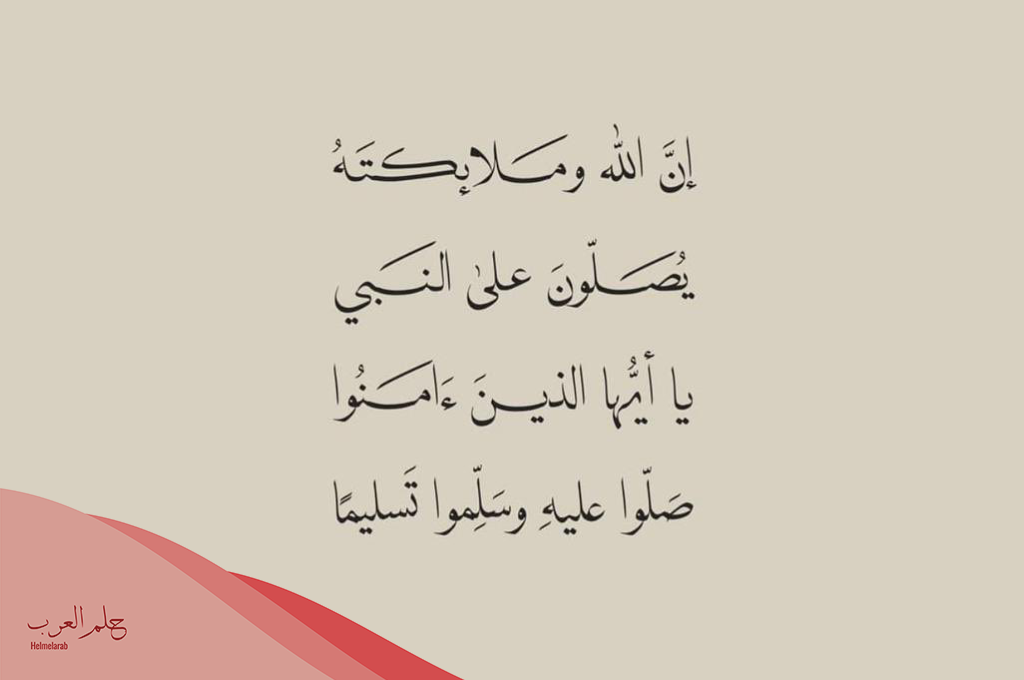 إنَّ اللّٰه ومَلائِكتَهُ
يُصَلّونَ علىٰ النَبي
يا أيُّها الذينَ ءَامَنُوا
صَلّوا عليهِ وسَلِّموا تَسليمًا
حلم العرب
Helmelarab